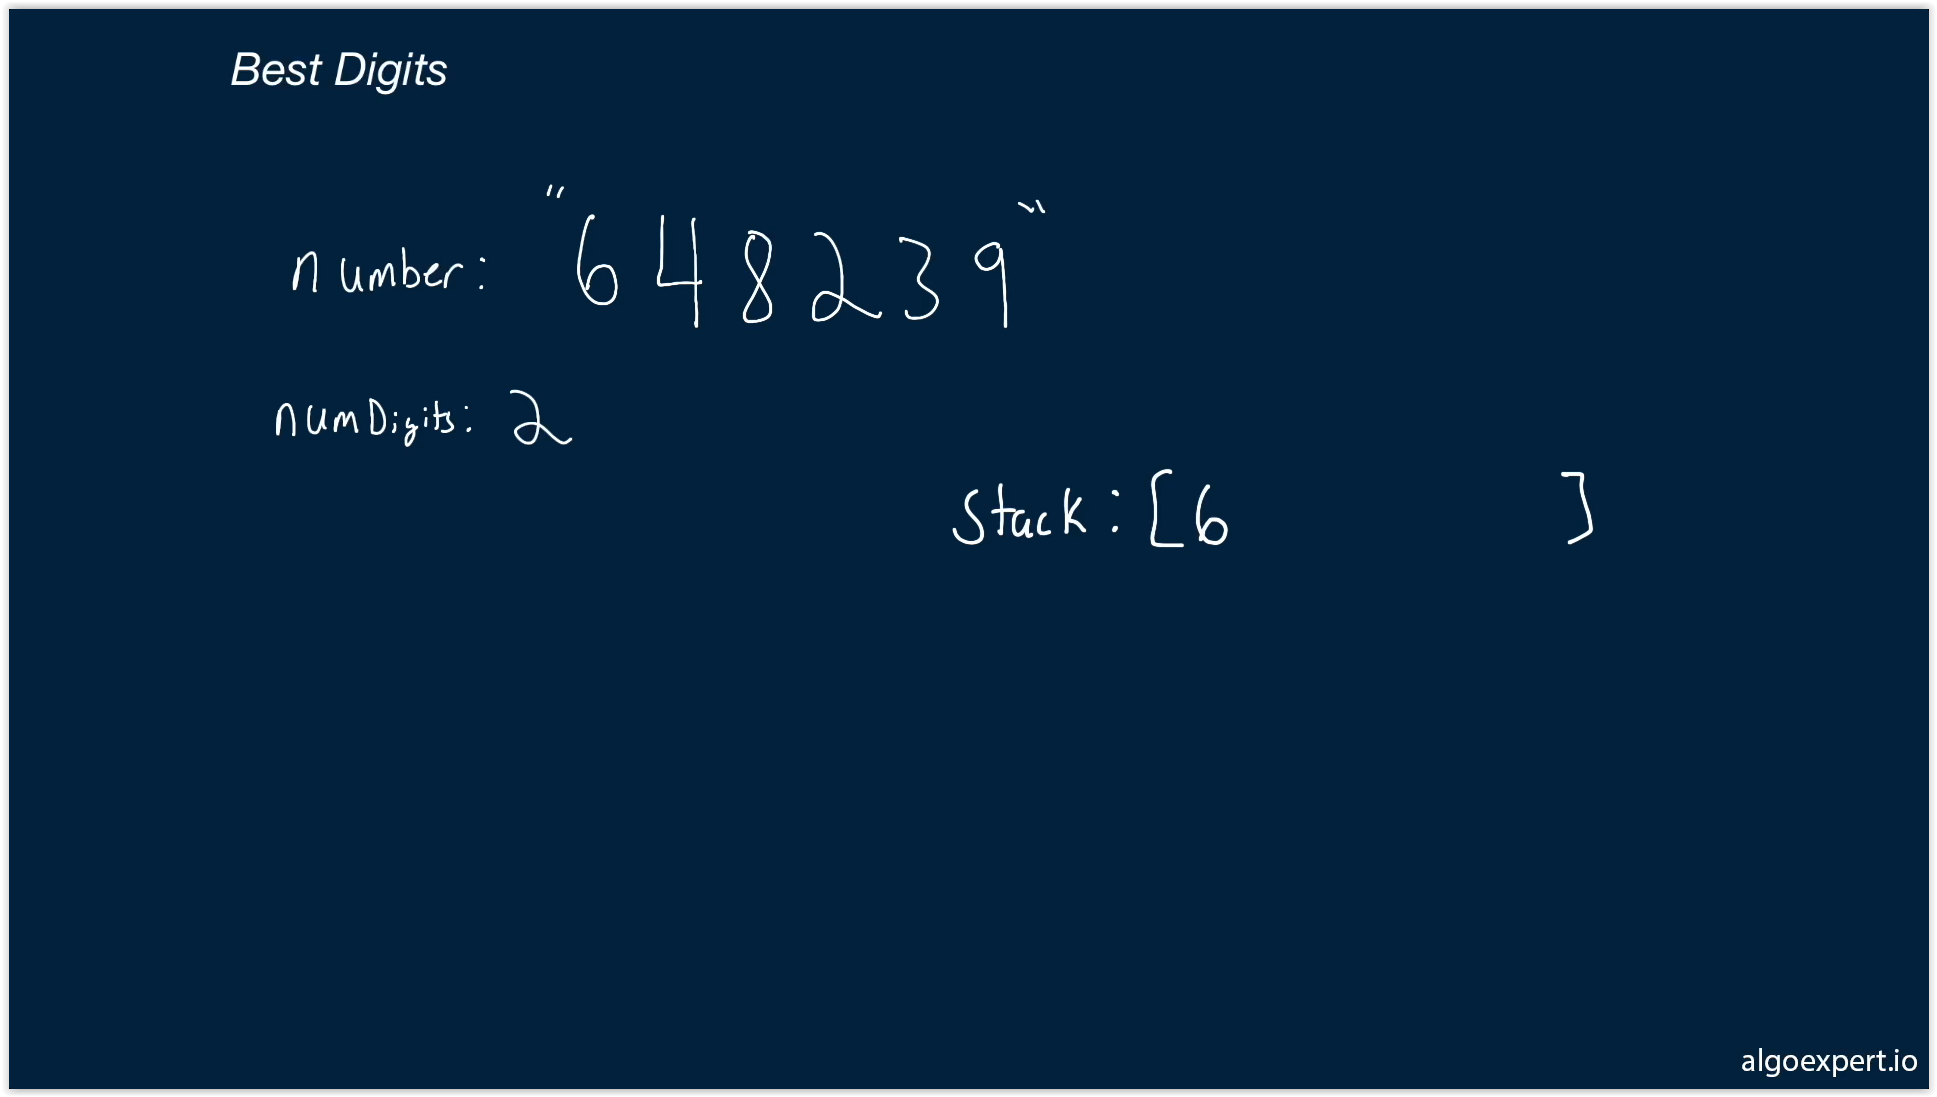 Best Digits
number: "648239"
numDigits: 2
Stack: [6 ]
algoexpert.io